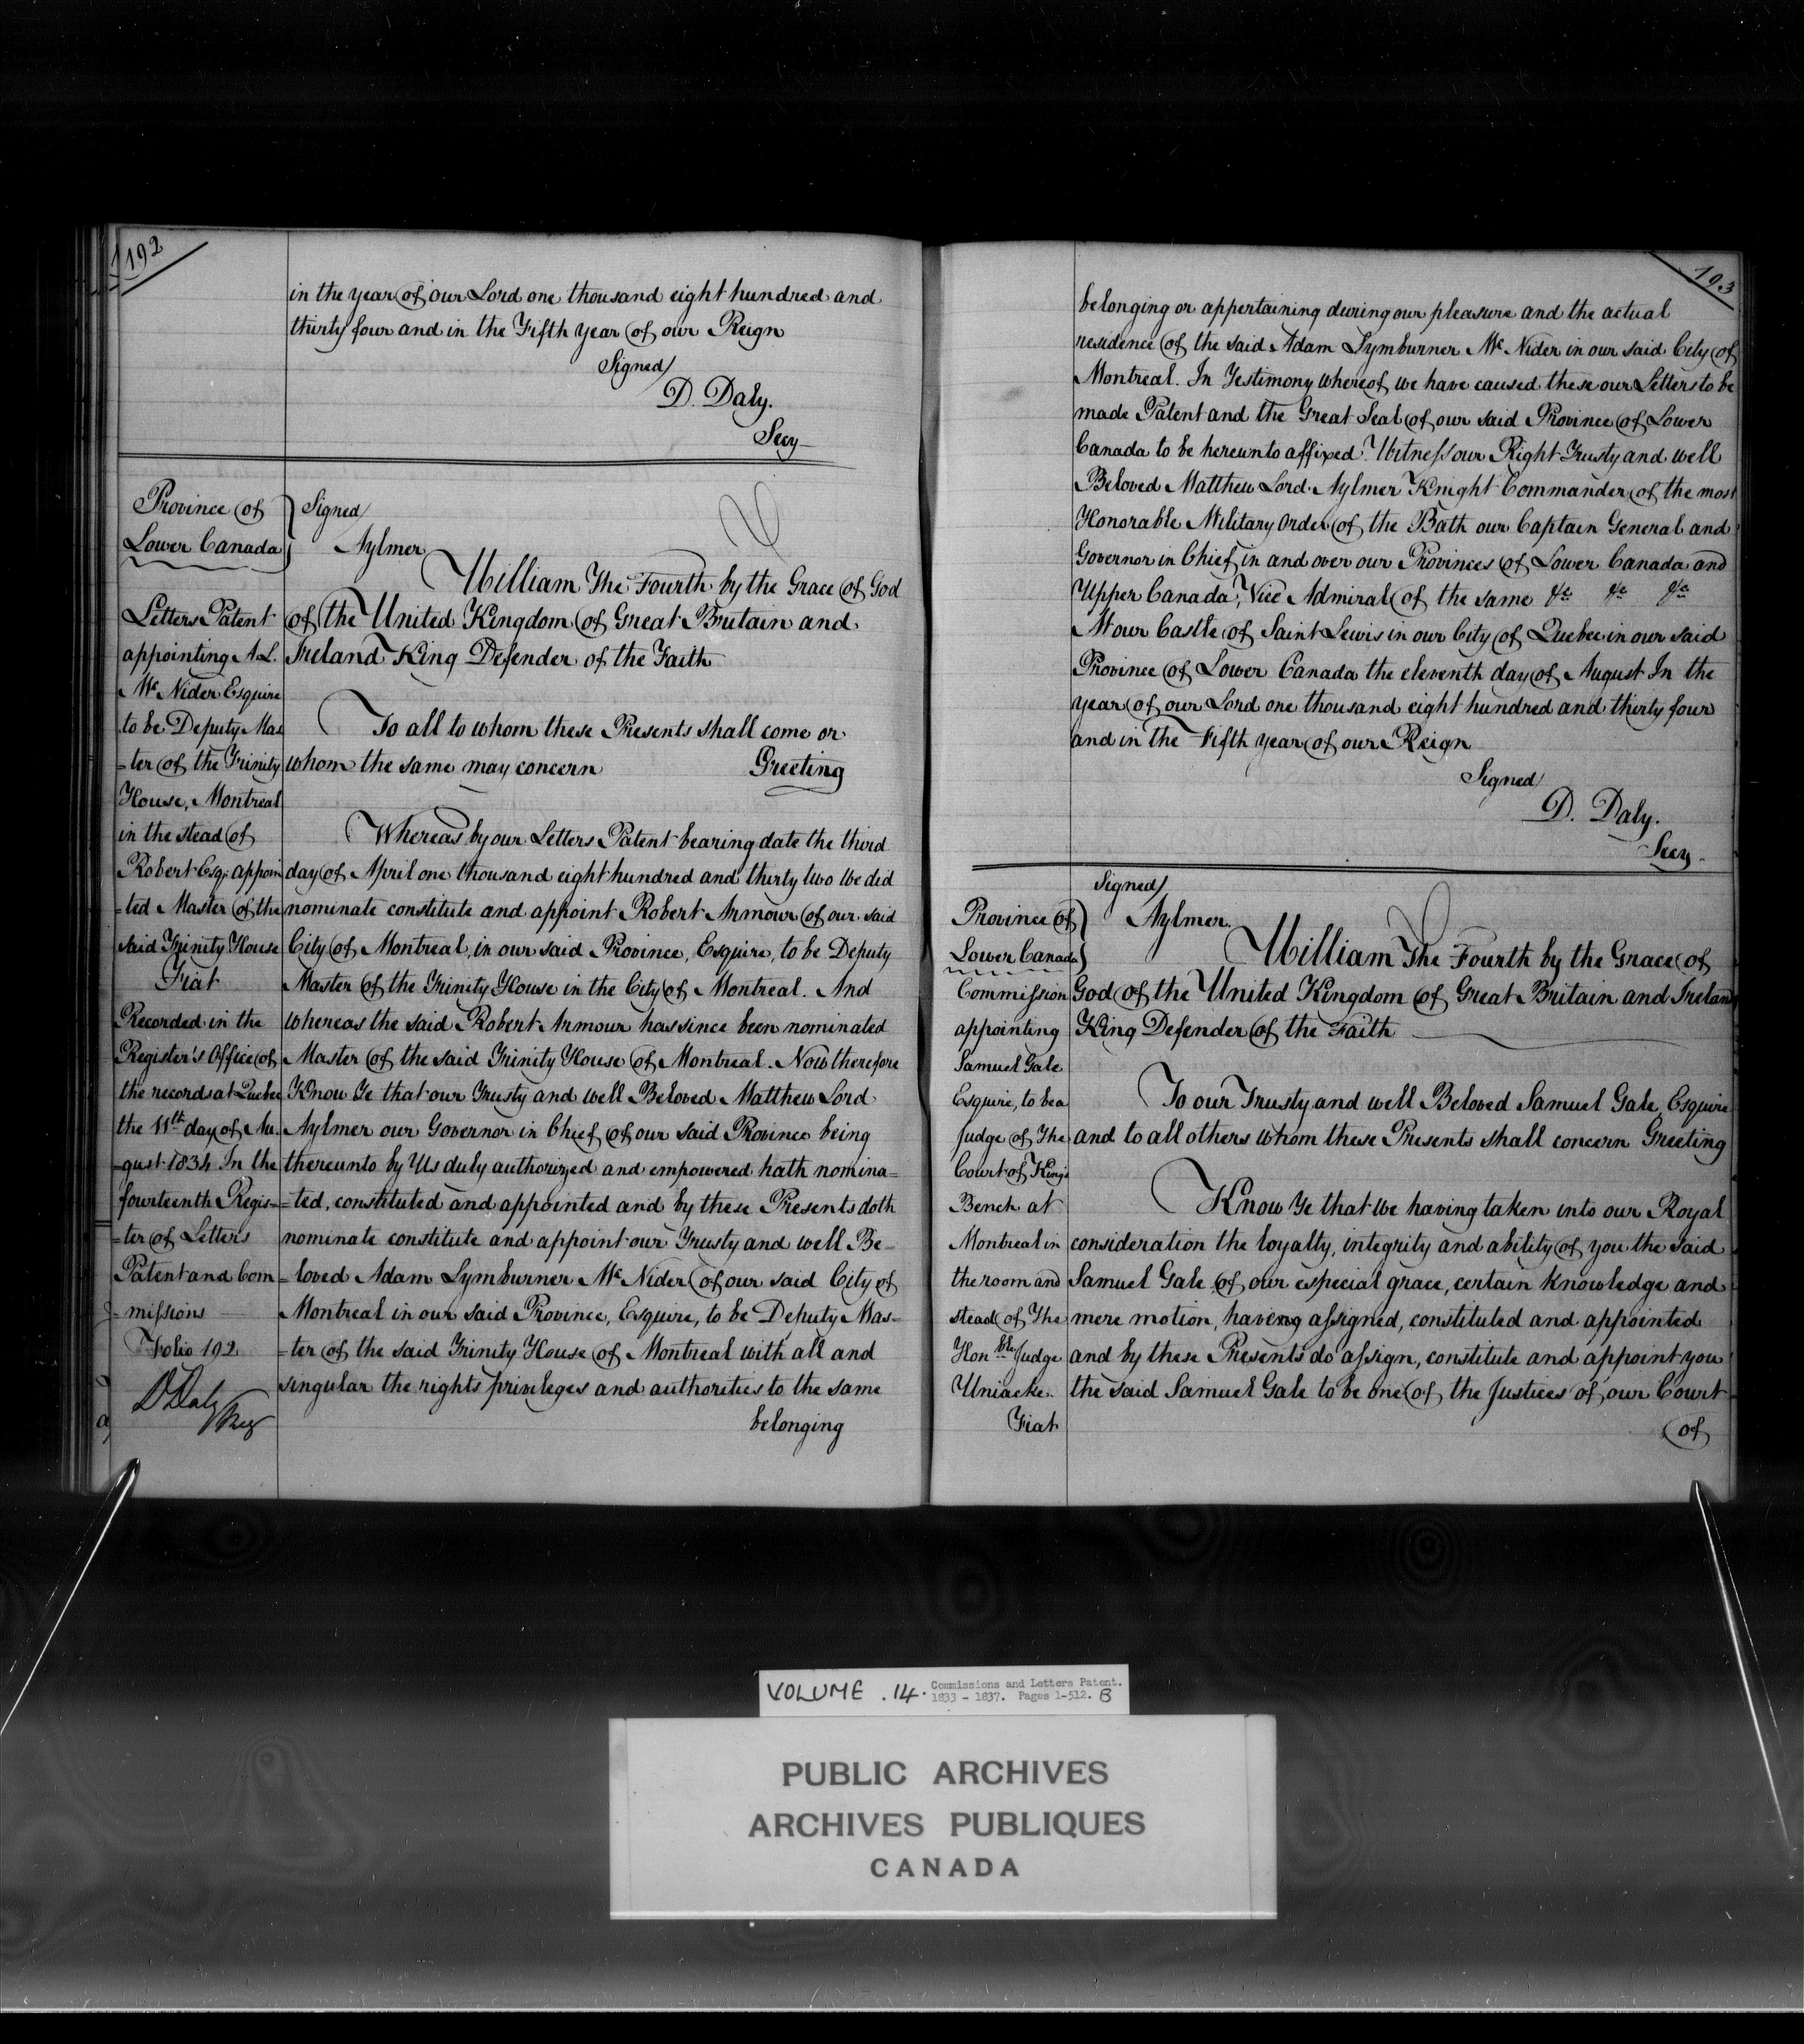 192
in the year of our Lord one thousand eight hundred and
thirty four and in the Fifth year of our Reign
Signed/
D. Daly.
Secy
Province of
Lower Canada
Letters Patent
appointing A. L.
Mc Nider Esquire
to be Deputy Mas
=ter of the Trinity
House, Montreal
in the stead of
Robert Esqr. appoin
=ted Master of the
said Trinity House
Fiat
Recorded in the
Register's Office of
the records at Quebec
the 11th day of Au.
=gust 1834 In the
fourteenth Regis=
=ter of Letters
Patent and Com
=missions
Folio 192
D Daly
Reg
Signed/
Aylmer
William The Fourth by the Grace of God
of the United Kingdom of Great Britain and
Ireland King Defender of the Faith
To all to whom these Presents shall come or
whom the same may concern Greeting
Whereas by our Letters Patent bearing date the third
day of April one thousand eight hundred and thirty two We did
nominate constitute and appoint Robert Armour of our said
City of Montreal, in our said Province, Esquire, to be Deputy
Master of the Trinity House in the City of Montreal. And
whereas the said Robert Armour has since been nominated
Master of the said Trinity House of Montreal. Now therefore
Know Ye that our Trusty and well Beloved Matthew Lord
Aylmer our Governor in Chief of our said Province being
thereunto by Us duly authorized and empowered hath nomina=
=ted, constituted and appointed and by these Presents doth
nominate constitute and appoint our Trusty and well Be=
=loved Adam Lymburner Mc Nider of our said City of
Montreal in our said Province, Esquire, to be Deputy Mas=
=ter of the said Trinity House of Montreal with all and
singular the rights privileges and authorities to the same
belonging
193
belonging or appertaining during our pleasure and the actual
residence of the said Adam Lymburner Mc Nider in our said City of
Montreal. In Testimony whereof we have caused these our Letters to be
made Patent and the Great Seal of our said Province of Lower
Canada to be hereunto affixed. Witness our Right Trusty and well
Beloved Matthew Lord Aylmer Knight Commander of the most
Honorable Military Order of the Bath our Captain General and
Governor in Chief in and over our Provinces of Lower Canada and
Upper Canada, Vice Admiral of the same &c &c &c
At our Castle of Saint Lewis in our City of Quebec in our said
Province of Lower Canada the eleventh day of August In the
year of our Lord one thousand eight hundred and thirty four
and in the Fifth year of our Reign
Signed/
D. Daly.
Secy
Province of
Lower Canada
Commission
appointing
Samuel Gale
Esquire, to be a
Judge of The
Court of King's
Bench at
Montreal in
the room and
stead of The
Honble Judge
Uniacke.
Fiat
Signed/
Aylmer.
William The Fourth by the Grace of
God of the United Kingdom of Great Britain and Ireland
King Defender of the Faith
To our Trusty and well Beloved Samuel Gale, Esquire
and to all others whom these Presents shall concern Greeting
Know Ye that We having taken into our Royal
consideration the loyalty, integrity and ability of you the said
Samuel Gale of our especial grace, certain knowledge and
mere motion, having assigned, constituted and appointed
and by these Presents do assign, constitute and appoint you
the said Samuel Gale to be one of the Justices of our Court
of
VOLUME .14. Commissions and Letters Patent.
1833 - 1837. Pages 1-512. B
PUBLIC ARCHIVES
ARCHIVES PUBLIQUES
CANADA